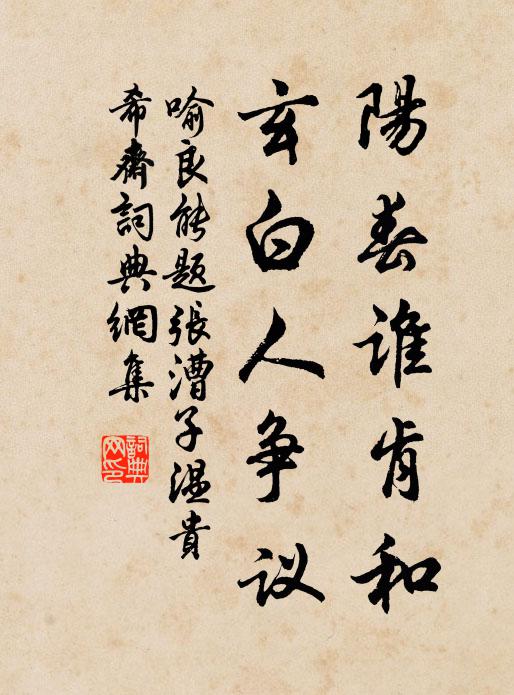 陽春誰肯和
玄白人争议
喻良能題張漕子温貴
希齋詞典網集
詞典网印